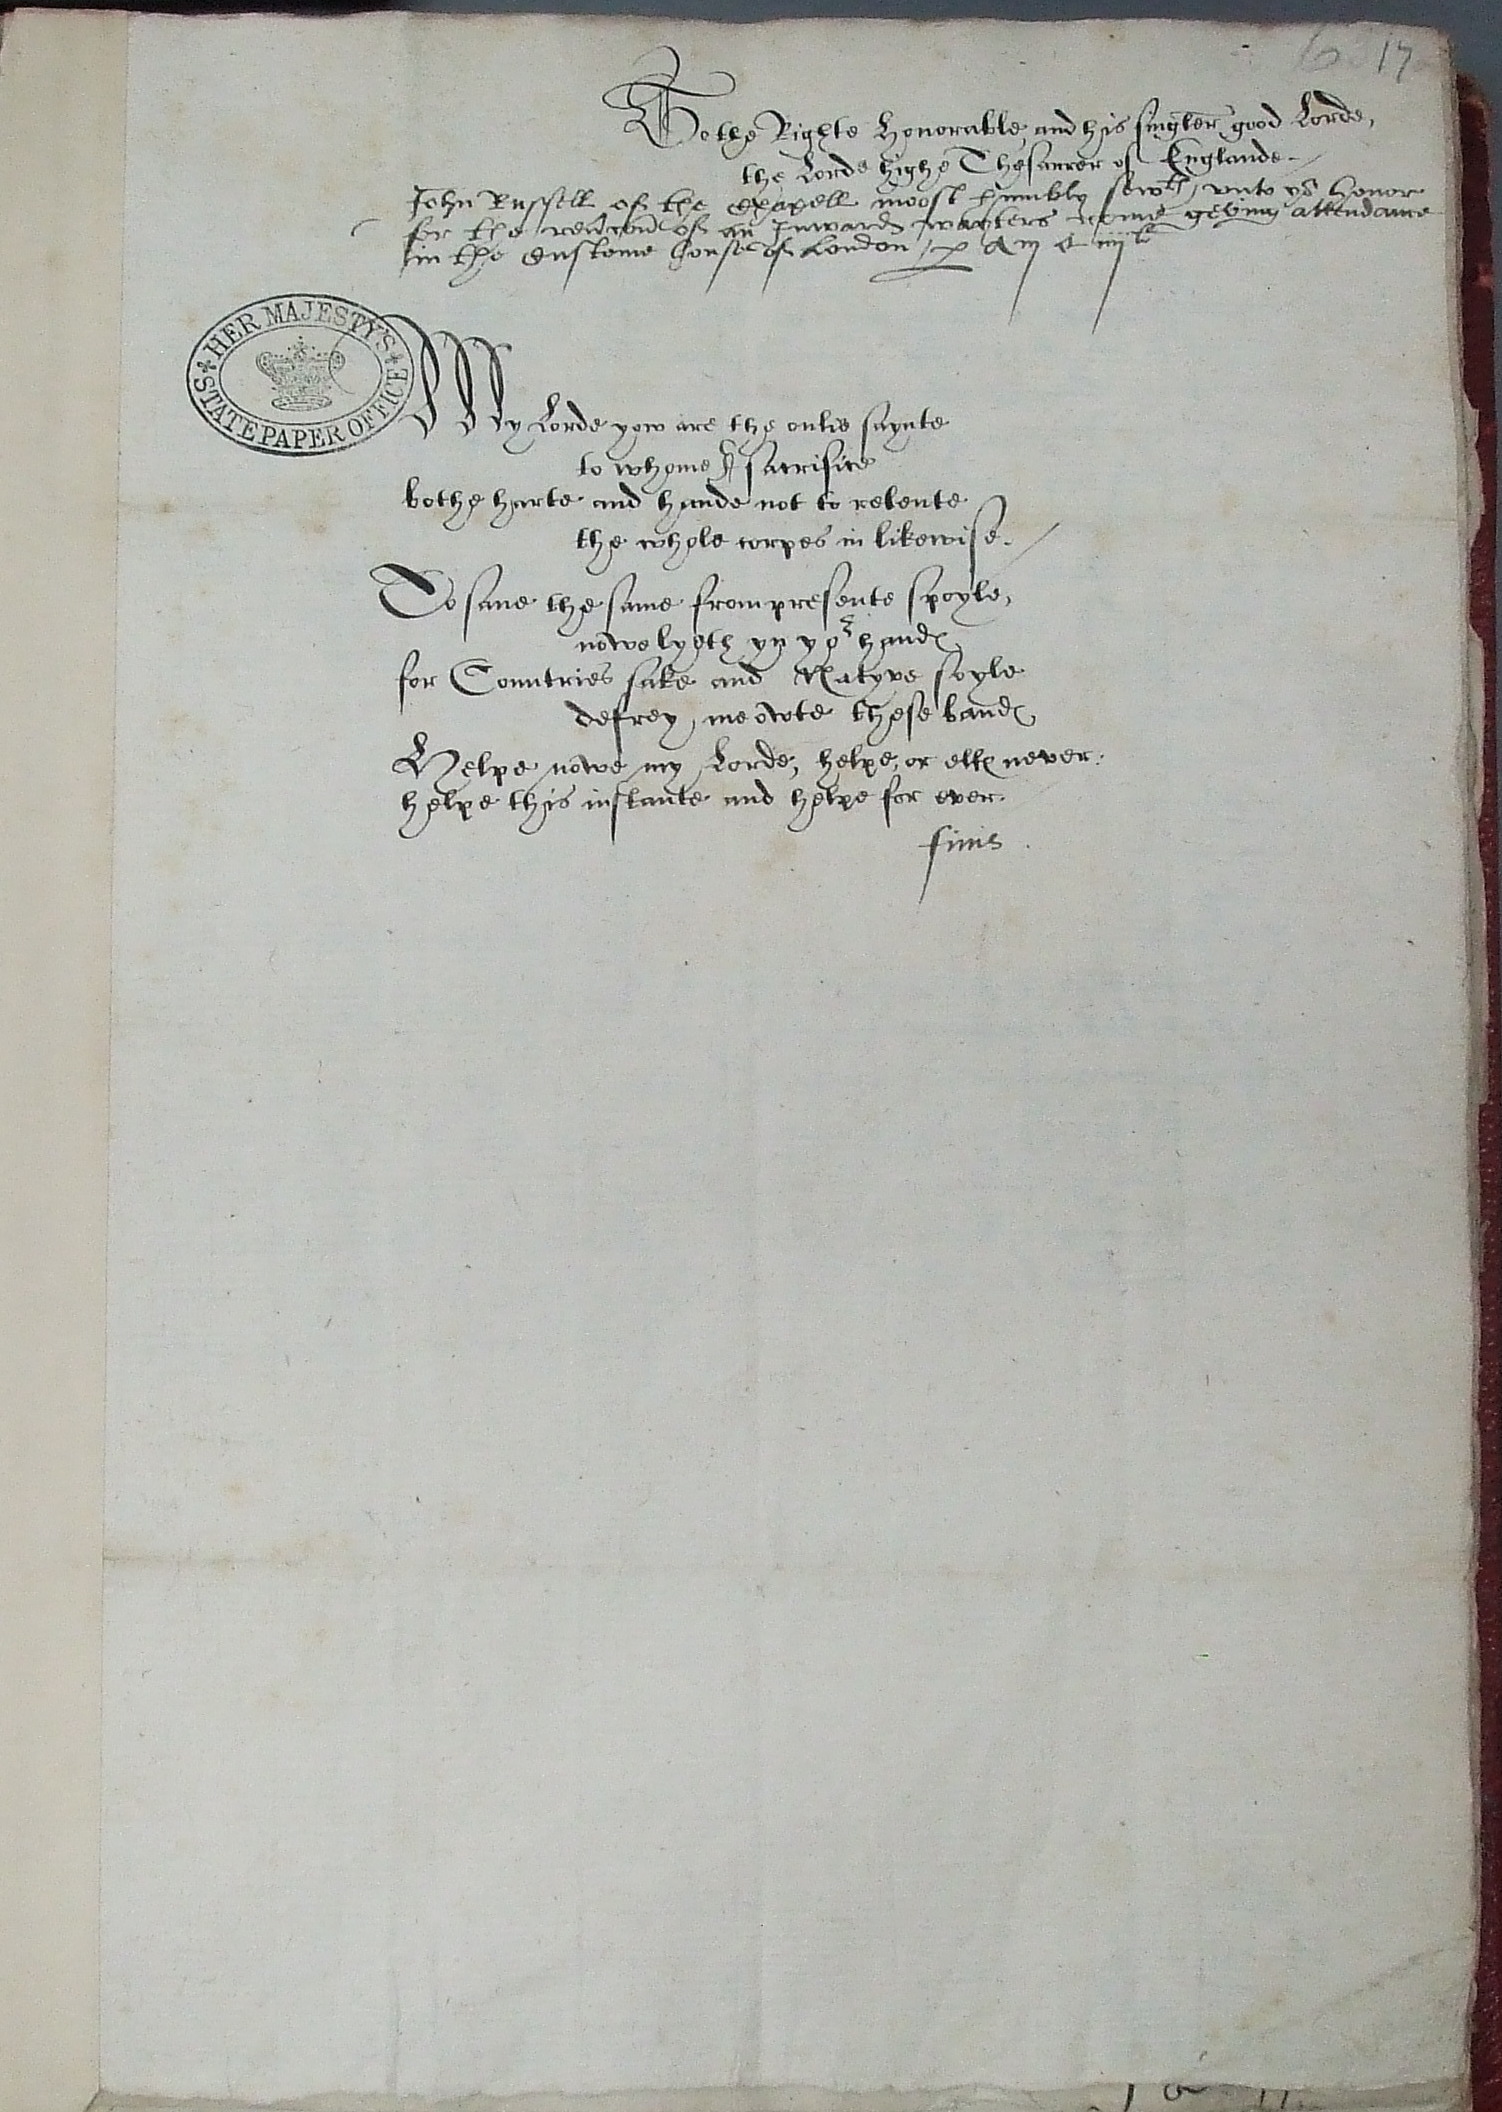 6 17
To the Righte Honorable, and his singler good Lorde,
the Lorde highe Thesaurer of Englande.
John Russell of the Chapell moost humbly sewth, vnto yor honor
for the reũcon of an Inward wayters rome geving attendance
in the Custome house of London,
HER MAJESTY'S
STATE PAPER OFFICE
My Lorde yow are the onlie saynte
to whome I sacrifice
bothe harte and hande not to relente
the whole corpes in likewise.
To save the same from presente spoyle,
nowe lyeth yn yor hands
for Countries sake and Natyve soyle
defrey, me owte these bands
Helpe nowe my Lorde, helpe, or ells never:
helpe this instante and helpe for ever.
finis.